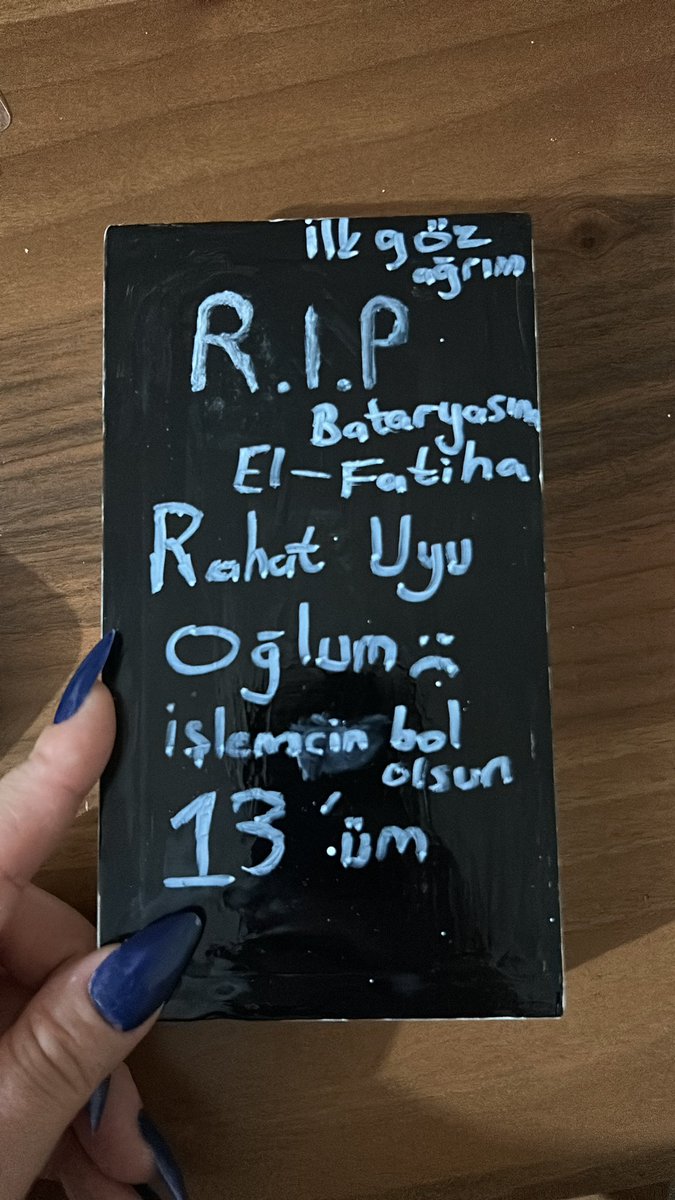 ilk göz
ağrım
R.I.P
Bataryasına
El-Fatiha
Rahat Uyu
Oğlum :(
işlemcin bol
olsun
13'üm